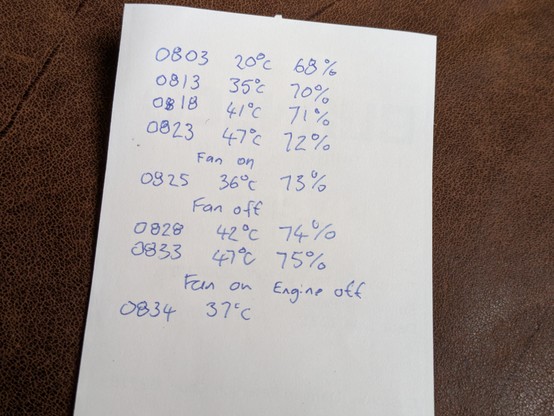 0803 20°c 68%
0813 35°c 70%
0818 41°c 71%
0823 47°c 72%
Fan on
0825 36°c 73%
Fan off
0828 42°c 74%
0833 47°c 75%
Fan on Engine off
0834 37°c